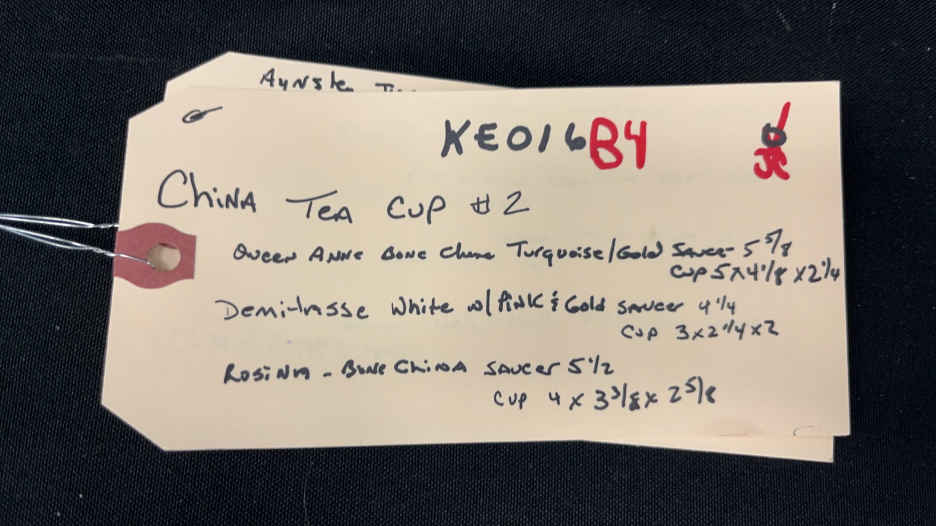 Aynsle
KE016B4
China Tea Cup #2
Queen Anne Bone China Turquoise/Gold Saucer 5 5/8
Cup 5x4 1/8 x 2 1/4
Demi-tasse White w/ Pink & Gold saucer 4 1/4
Cup 3x2 1/4 x2
Rosina - Bone China Saucer 5 1/2
Cup 4 x 3 3/8 x 2 5/8